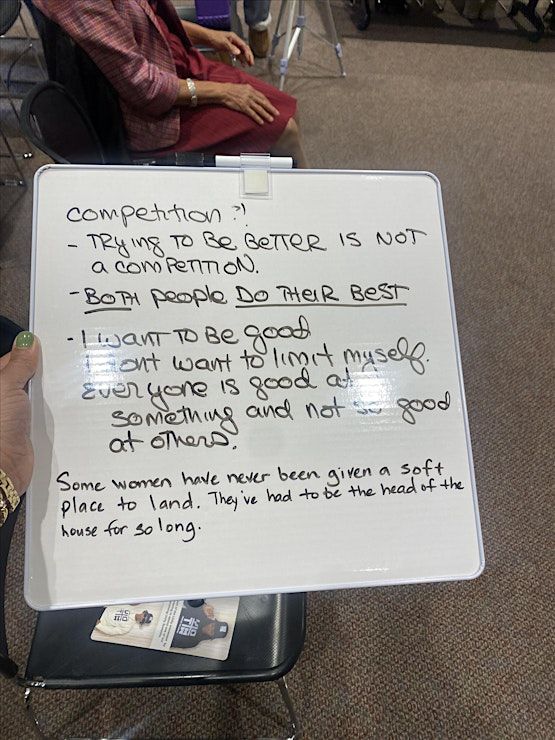 competition ?!
- TRYing TO Be BeTTER IS NOT
a comPeTITION.
- BOTH people DO THEIR BEST
- I wANT TO Be good
I dont want to limit myself.
Everyone IS good at
something and not so good
at others.
Some women have never been given a soft
place to land. They've had to be the head of the
house for so long.